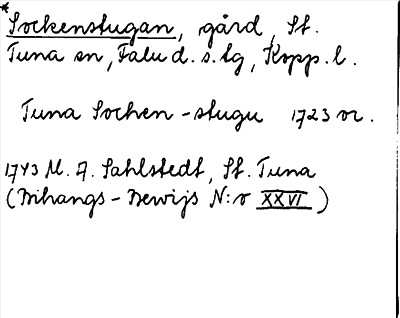 *Sockenstugan, gård, St.
Tuna sn, Falu d. s. tg, Kopp. l.
Tuna Sochen-stugu 1723 or.
1743 M. A. Sahlstedt, St. Tuna
(Bihangs-Bewijs N:o XXVI)